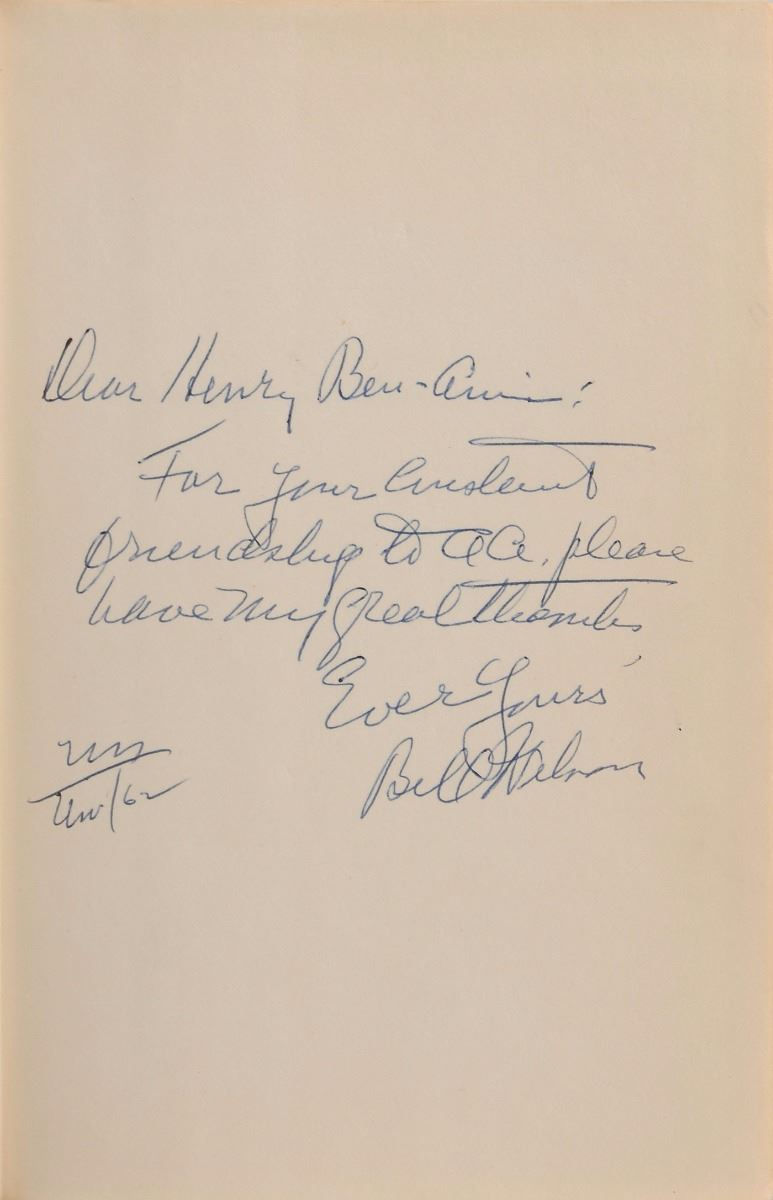 Dear Henry Ben-Ami:
For your constant
friendship to AA, please
have my great thanks
Ever Yours
Bill Wilson
Nov/62